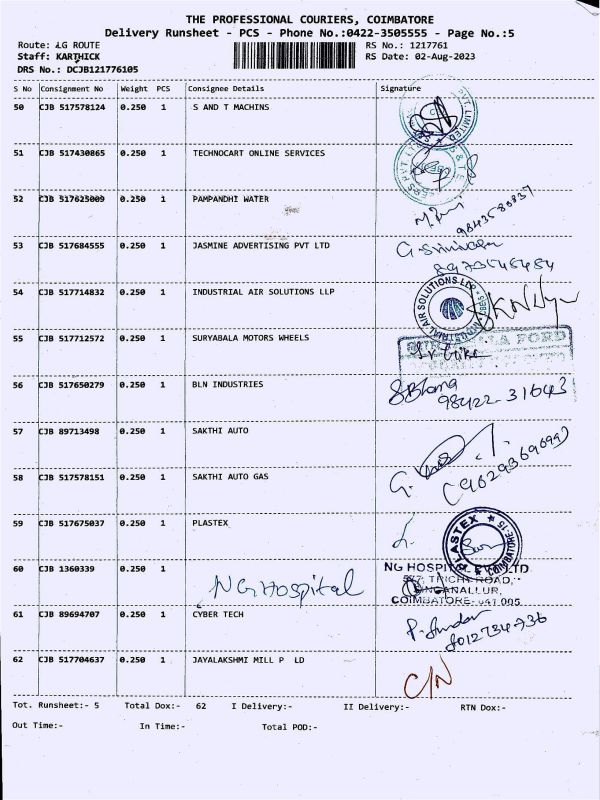 THE PROFESSIONAL COURIERS, COIMBATORE
Delivery Runsheet - PCS - Phone No.:0422-3505555 - Page No.:5
Route: LG ROUTE RS No.: 1217761
Staff: KARTHICK RS Date: 02-Aug-2023
DRS No.: DCJB121776105
S No Consignment No Weight PCS Consignee Details Signature
50 CJB 517578124 0.250 1 S AND T MACHINS
51 CJB 517430865 0.250 1 TECHNOCART ONLINE SERVICES
52 CJB 517625009 0.250 1 PAMPANDHI WATER
9843583837
53 CJB 517684555 0.250 1 JASMINE ADVERTISING PVT LTD G. Srinivasan
54 CJB 517714832 0.250 1 INDUSTRIAL AIR SOLUTIONS LLP INDUSTRIAL AIR SOLUTIONS LLP
55 CJB 517712572 0.250 1 SURYABALA MOTORS WHEELS
56 CJB 517650279 0.250 1 BLN INDUSTRIES
98422-31643
57 CJB 89713498 0.250 1 SAKTHI AUTO
58 CJB 517578151 0.250 1 SAKTHI AUTO GAS G.
59 CJB 517675037 0.250 1 PLASTEX PLASTEX COIMBATORE-15
60 CJB 1360339 0.250 1 NG Hospital NG HOSPITAL PVT LTD
TRICHY ROAD,
SINGANALLUR,
COIMBATORE-641 005
61 CJB 89694707 0.250 1 CYBER TECH
8012734736
62 CJB 517704637 0.250 1 JAYALAKSHMI MILL P LD C/N
Tot. Runsheet:- 5 Total Dox:- 62 I Delivery:- II Delivery:- RTN Dox:-
Out Time:- In Time:- Total POD:-